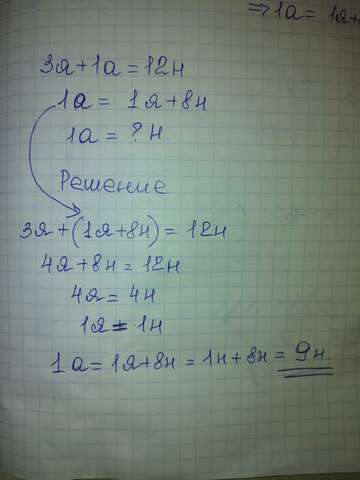 ⇒ 1а = 1я+
3я+1а=12н
1а = 1я+8н
1а = ? н.
Решение
3я+(1я+8н)=12н
4я+8н=12н
4я=4н
1я=1н
1а=1я+8н=1н+8н=9н.